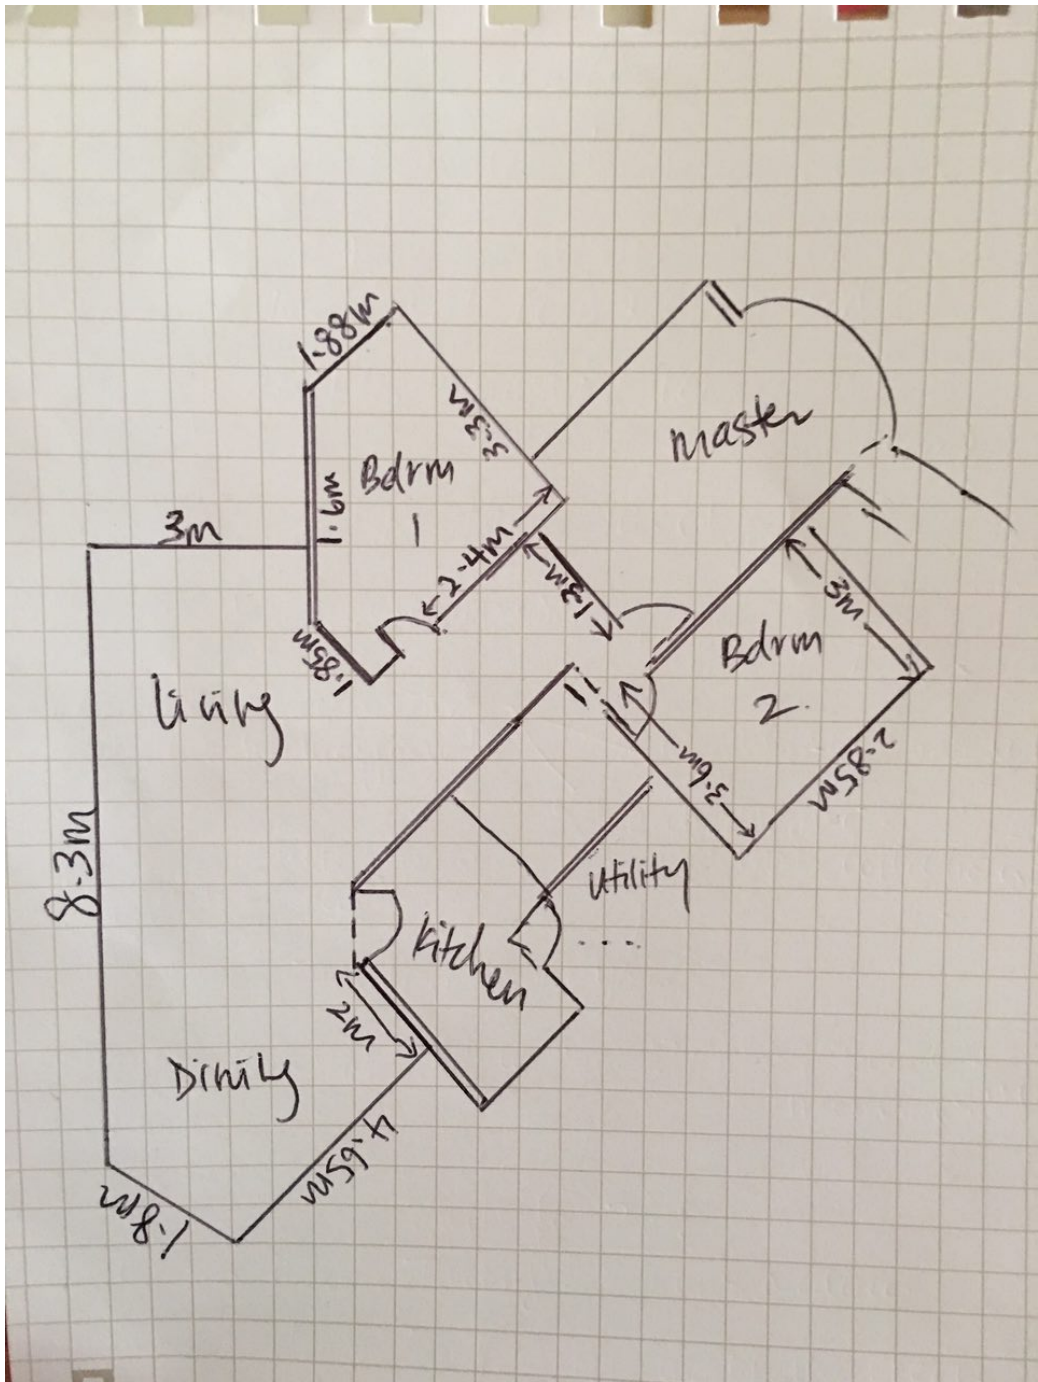 1.88m
3.3m
Master
Bdrm
1
1.6m
3m
2.4m
1.3m
3m
Bdrm
2.
1.85m
Living
2.85m
3.6m
8.3m
Utility
....
Kitchen
2m
Dining
4.65m
1.8m